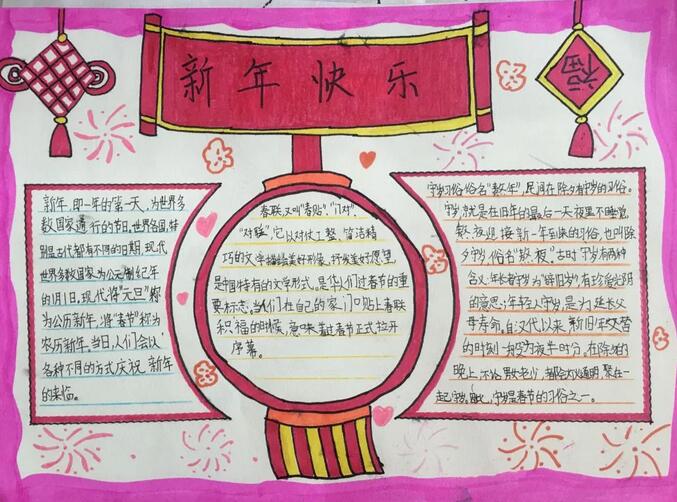 新年快乐
福
新年,即一年的第一天,为世界多
数国家通行的节日。世界各国,特
别是古代都有不同的日期,现代
世界多数国家为公元制纪年
的1月1日。现代将"元旦"称
为公历新年,将"春节"称为
农历新年。当日,人们会以
各种不同的方式庆祝新年
的来临。
春联,又叫"春贴"、"门对"、
"对联",它以对仗工整、简洁精
巧的文字描绘美好形象,抒发美好愿望,
是中国特有的文字形式,是华人们过春节的重
要标志。当人们在自己的家门口贴上春联
和福的时候,意味着过春节正式拉开
序幕。
守岁习俗俗名"熬年",民间在除夕有守岁的习俗。
守岁,就是在旧年的最后一天夜里不睡觉,
熬夜迎接新一年到来的习俗,也叫除
夕守岁,俗名"熬夜"。古时守岁有两种
含义:年长者守岁为"辞旧岁",有珍爱光阴
的意思;年轻人守岁,是为延长父
母寿命。自汉代以来,新旧年交替
的时刻一般为夜半时分。在除夕的
晚上,不论男女老少,都会灯火通明,聚在一
起守岁。因此,守岁是春节的习俗之一。